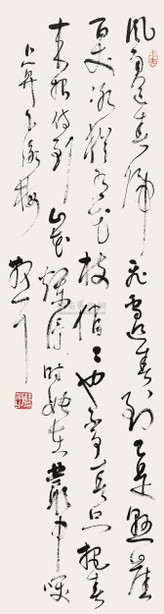 风雨送春归飞雪迎春到已是悬崖
百丈冰犹有花枝俏俏也不争春只把春
来报待到山花烂漫时她在丛中笑
卜算子咏梅